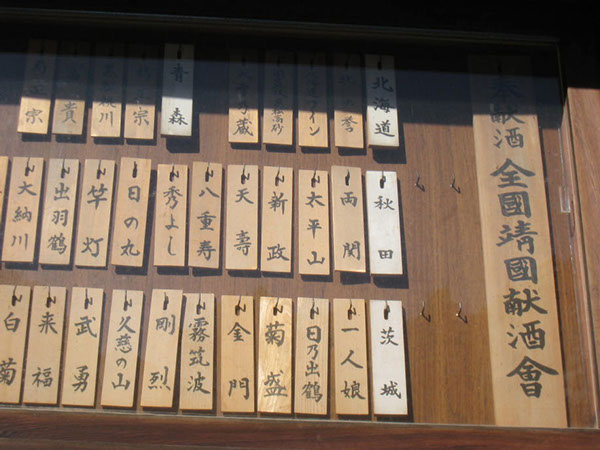 奉献酒 全國靖國献酒會
北海道
北の誉
ワイン
高砂
乃蔵
青森
正宗
桃川
貴
正宗
秋田
両関
太平山
新政
天壽
八重寿
秀よし
日の丸
竿灯
出羽鶴
大納川
茨城
一人娘
日乃出鶴
菊盛
金門
霧筑波
剛烈
久慈の山
武勇
来福
白菊